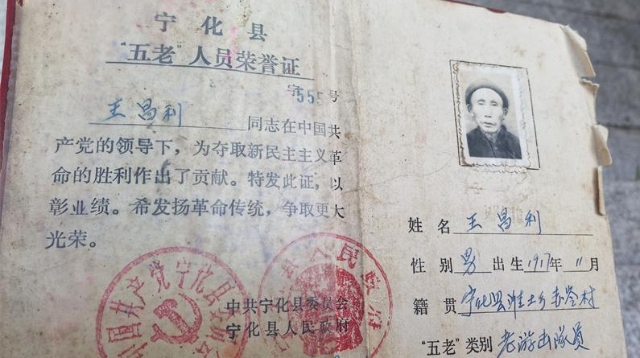 宁化县
“五老”人员荣誉证
字55号
王昌利 同志在中国共
产党的领导下，为夺取新民主主义革
命的胜利作出了贡献。特发此证，以
彰业绩。希发扬革命传统，争取更大
光荣。
中共宁化县委员会
宁化县人民政府
中国共产党宁化县
人民政府
姓名 王昌利
性别 男 出生 1917年11月
籍贯 宁化县淮土乡 村
“五老”类别 老游击队员